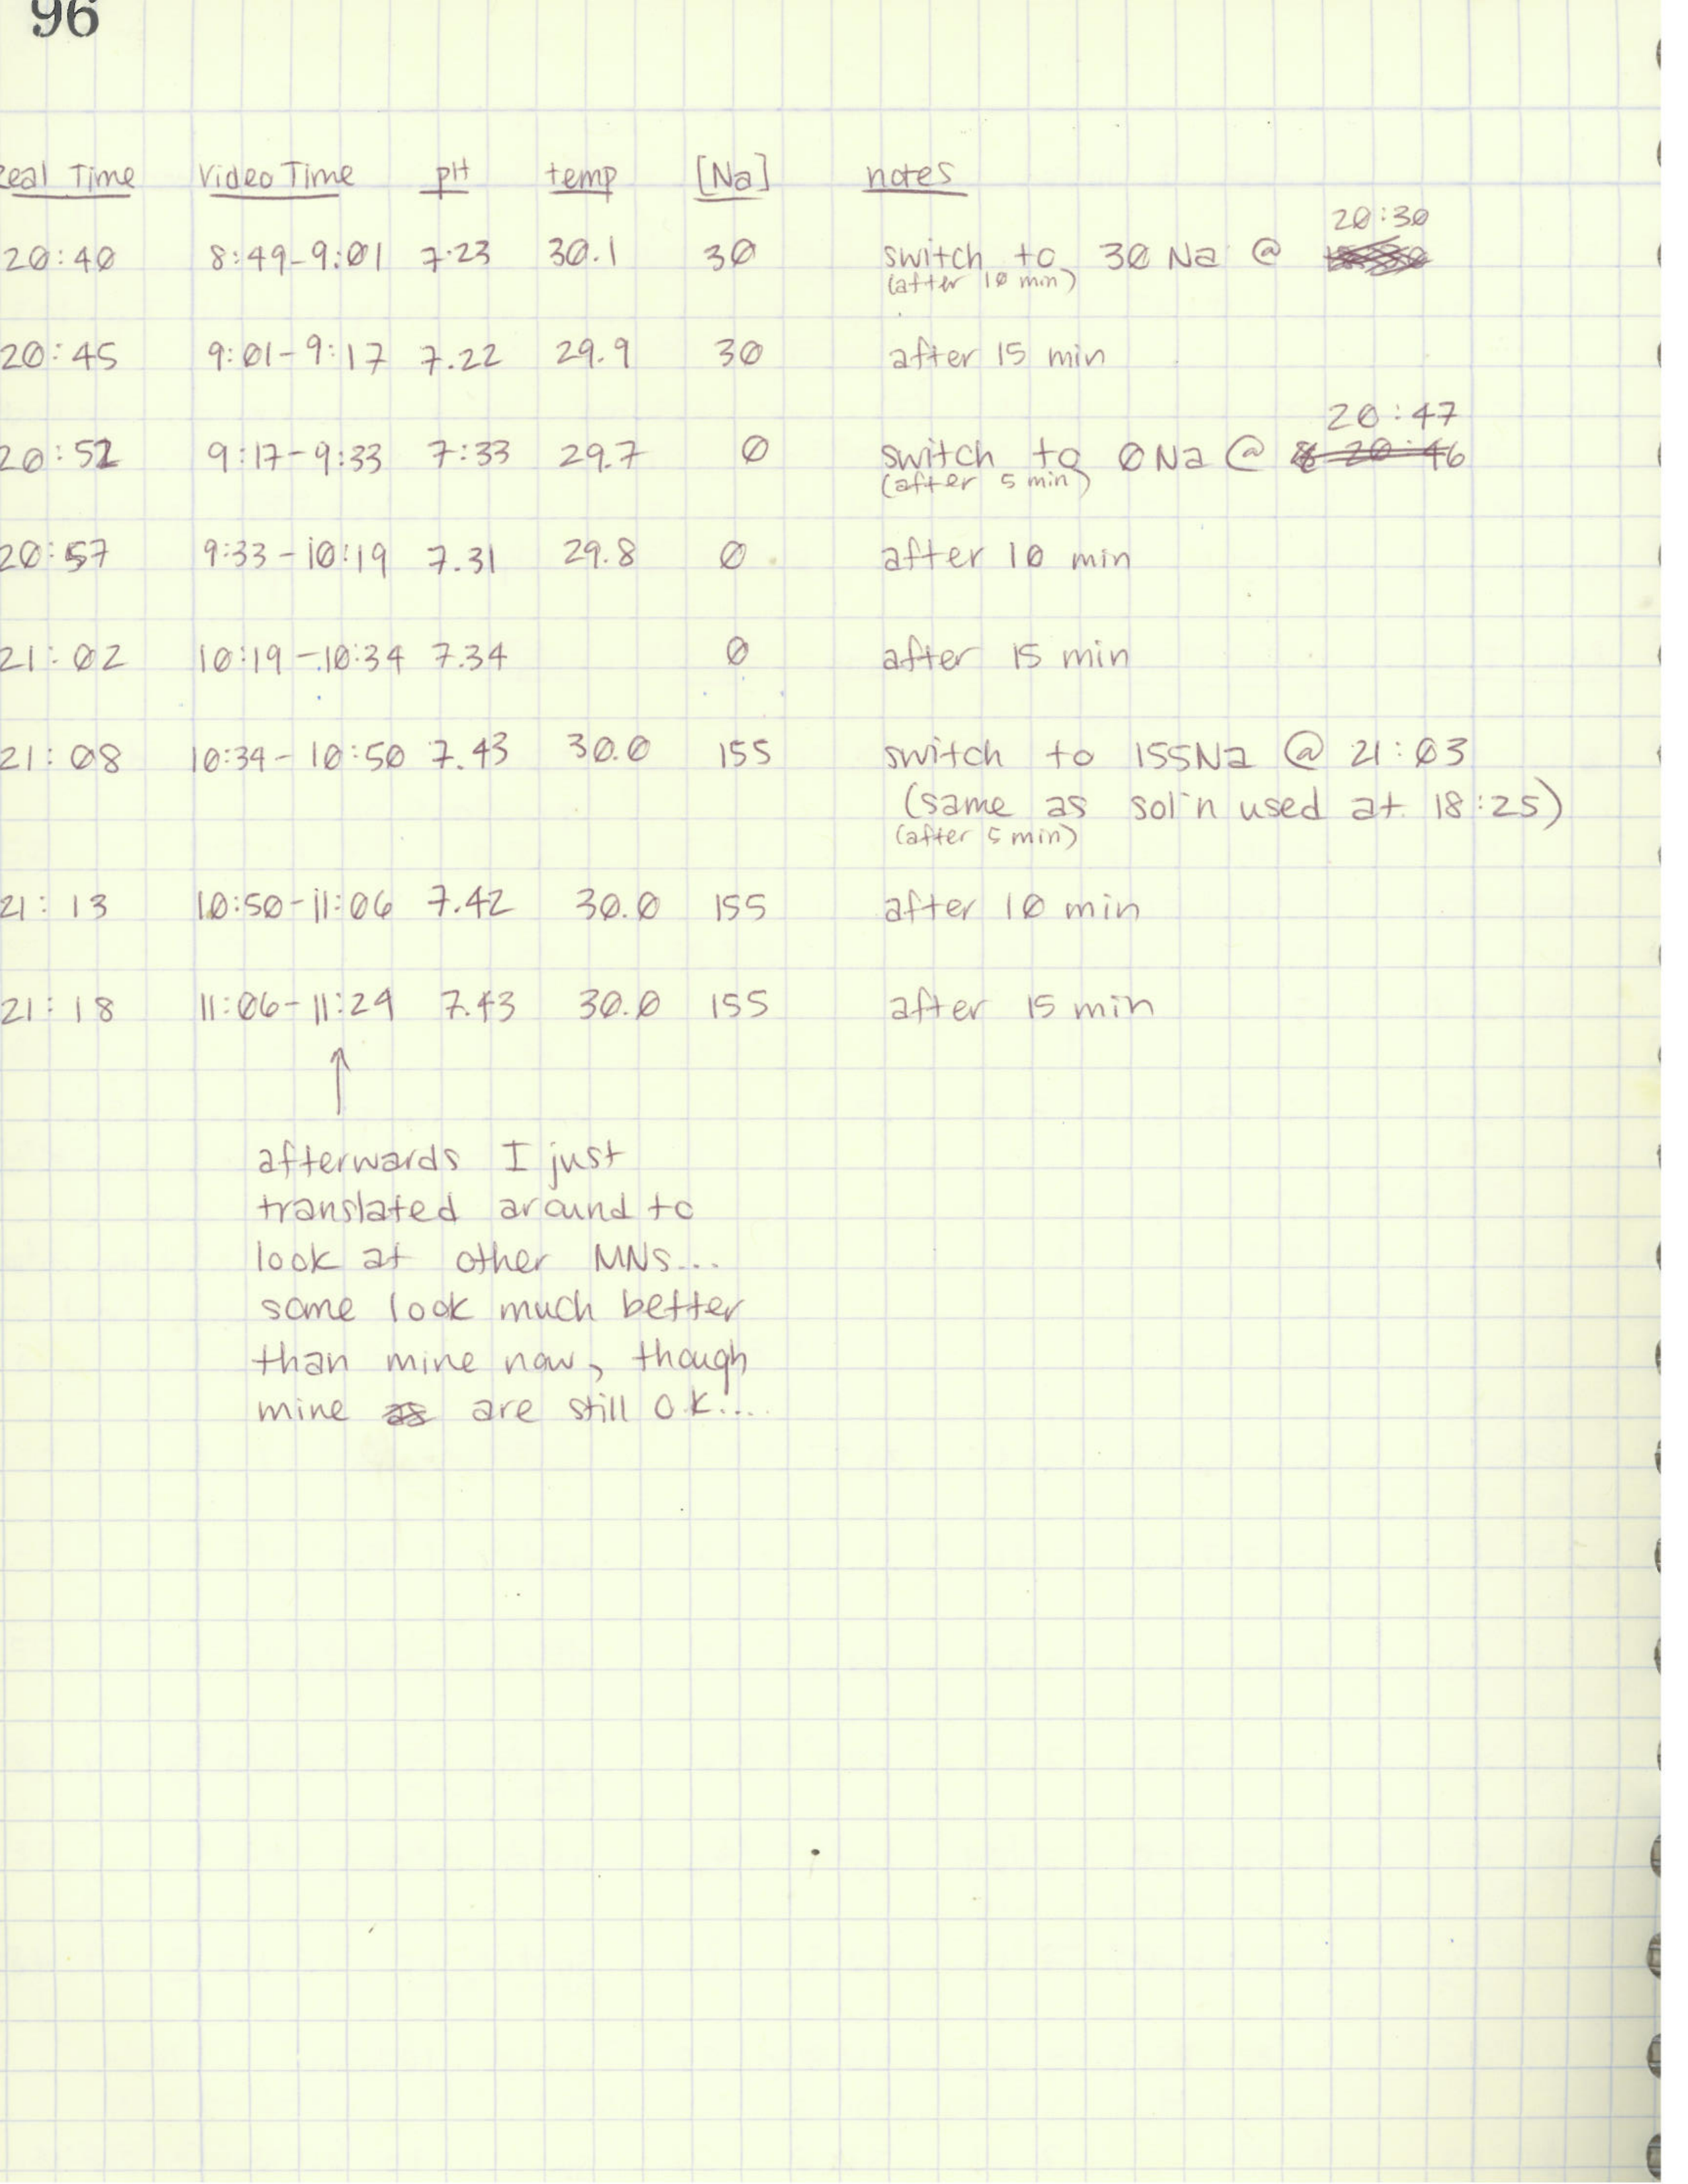 96
Real Time Video Time pH temp [Na] notes
20:30
20:40 8:49-9:01 7.23 30.1 30 switch to 30 Na @
(after 10 min)
20:45 9:01-9:17 7.22 29.9 30 after 15 min
20:47
20:52 9:17-9:33 7:33 29.7 0 switch to 0 Na @ 20:46
(after 5 min)
20:57 9:33-10:19 7.31 29.8 0 after 10 min
21:02 10:19-10:34 7.34 0 after 15 min
21:08 10:34-10:50 7.43 30.0 155 switch to 155Na @ 21:03
(same as sol'n used at 18:25)
(after 5 min)
21:13 10:50-11:06 7.42 30.0 155 after 10 min
21:18 11:06-11:24 7.43 30.0 155 after 15 min
afterwards I just
translated around to
look at other MNs...
some look much better
than mine now, though
mine are still O.K....